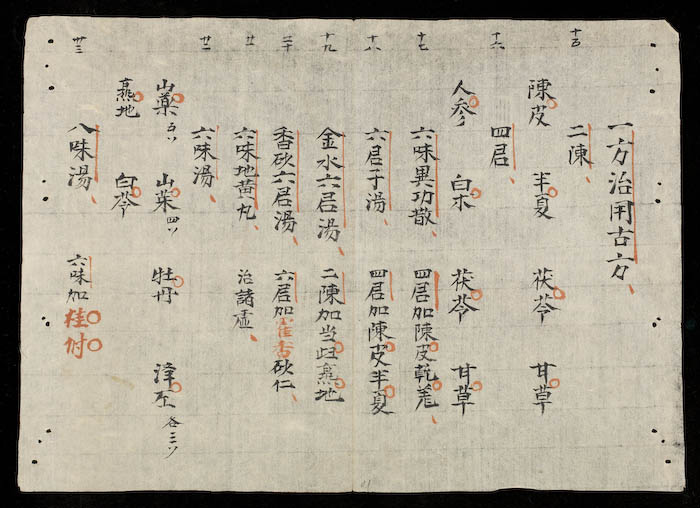 一方治用古方、
十五 二陳、
陳皮 半夏 茯苓 甘草
十六 四君、
人参 白朮 茯苓 甘草
十七 六味異功散、 四君加陳皮乾姜、
十八 六君子湯、 四君加陳皮半夏
十九 金水六君湯、 二陳加当归熟地
二十 香砂六君湯、 六君加藿香砂仁
廿一 六味地黄丸、 治諸虚、
廿二 六味湯、
山薬五〃 山茱四〃 牡丹 各三〃
熟地 白苓
廿三 八味湯、 六味加桂附